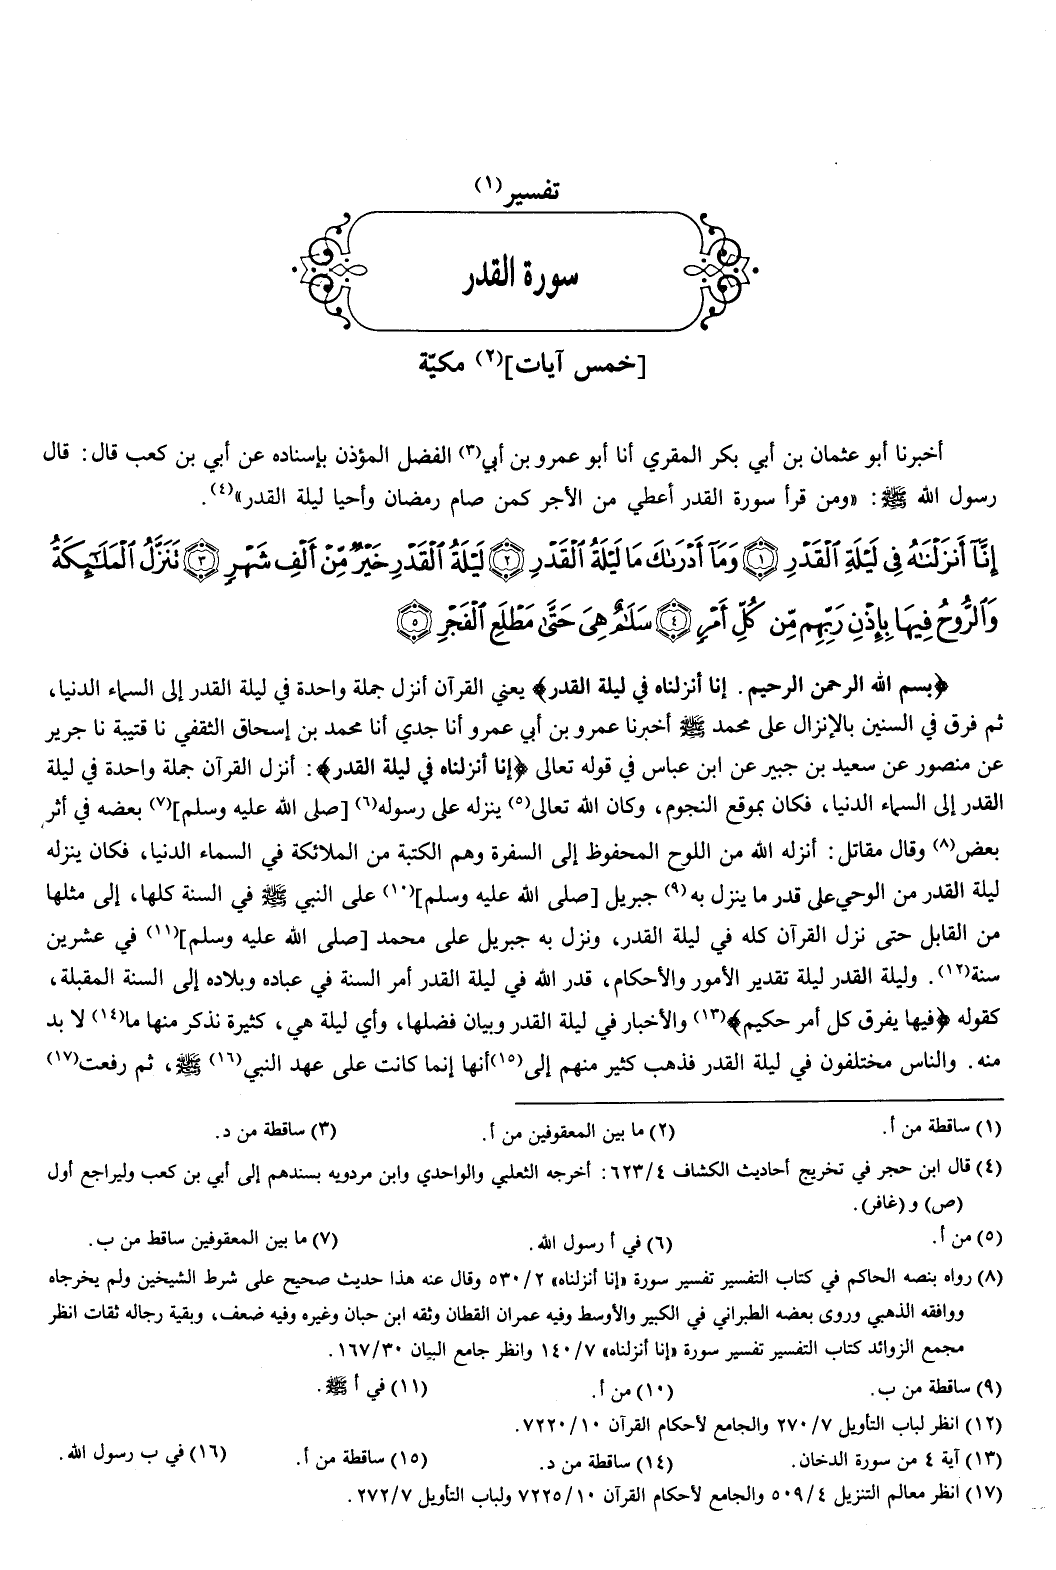 تفسير(١)
سورة القدر
[خمس آيات](٢) مكيّة
أخبرنا أبو عثمان بن أبي بكر المقري أنا أبو عمرو بن أبي(٣) الفضل المؤذن بإسناده عن أبي بن كعب قال: قال
رسول الله ﷺ: «ومن قرأ سورة القدر أعطي من الأجر كمن صام رمضان وأحيا ليلة القدر»(٤).
إِنَّآ أَنزَلْنَٰهُ فِى لَيْلَةِ ٱلْقَدْرِ ١ وَمَآ أَدْرَىٰكَ مَا لَيْلَةُ ٱلْقَدْرِ ٢ لَيْلَةُ ٱلْقَدْرِ خَيْرٌ مِّنْ أَلْفِ شَهْرٍ ٣ تَنَزَّلُ ٱلْمَلَٰٓئِكَةُ
وَٱلرُّوحُ فِيهَا بِإِذْنِ رَبِّهِم مِّن كُلِّ أَمْرٍ ٤ سَلَٰمٌ هِىَ حَتَّىٰ مَطْلَعِ ٱلْفَجْرِ ٥
﴿بسم الله الرحمن الرحيم. إنا أنزلناه في ليلة القدر﴾ يعني القرآن أنزل جملة واحدة في ليلة القدر إلى السماء الدنيا،
ثم فرق في السنين بالإنزال على محمد ﷺ أخبرنا عمرو بن أبي عمرو أنا جدي أنا محمد بن إسحاق الثقفي نا قتيبة نا جرير
عن منصور عن سعيد بن جبير عن ابن عباس في قوله تعالى ﴿إنا أنزلناه في ليلة القدر﴾: أنزل القرآن جملة واحدة في ليلة
القدر إلى السماء الدنيا، فكان بموقع النجوم، وكان الله تعالى(٥) ينزله على رسوله(٦) [صلى الله عليه وسلم](٧) بعضه في أثر
بعض(٨) وقال مقاتل: أنزله الله من اللوح المحفوظ إلى السفرة وهم الكتبة من الملائكة في السماء الدنيا، فكان ينزله
ليلة القدر من الوحي على قدر ما ينزل به(٩) جبريل [صلى الله عليه وسلم](١٠) على النبي ﷺ في السنة كلها، إلى مثلها
من القابل حتى نزل القرآن كله في ليلة القدر، ونزل به جبريل على محمد [صلى الله عليه وسلم](١١) في عشرين
سنة(١٢). وليلة القدر ليلة تقدير الأمور والأحكام، قدر الله في ليلة القدر أمر السنة في عباده وبلاده إلى السنة المقبلة،
كقوله ﴿فيها يفرق كل أمر حكيم﴾(١٣) والأخبار في ليلة القدر وبيان فضلها، وأي ليلة هي، كثيرة نذكر منها ما(١٤) لا بد
منه. والناس مختلفون في ليلة القدر فذهب كثير منهم إلى(١٥) أنها إنما كانت على عهد النبي(١٦) ﷺ، ثم رفعت(١٧)
(١) ساقطة من أ. (٢) ما بين المعقوفين من أ. (٣) ساقطة من د.
(٤) قال ابن حجر في تخريج أحاديث الكشاف ٦٢٣/٤: أخرجه الثعلبي والواحدي وابن مردويه بسندهم إلى أبي بن كعب وليراجع أول
(ص) و(غافر).
(٥) من أ. (٦) في أ رسول الله. (٧) ما بين المعقوفين ساقط من ب.
(٨) رواه بنصه الحاكم في كتاب التفسير تفسير سورة «إنا أنزلناه» ٥٣٠/٢ وقال عنه هذا حديث صحيح على شرط الشيخين ولم يخرجاه
ووافقه الذهبي وروى بعضه الطبراني في الكبير والأوسط وفيه عمران القطان وثقه ابن حبان وغيره وفيه ضعف، وبقية رجاله ثقات انظر
مجمع الزوائد كتاب التفسير تفسير سورة «إنا أنزلناه» ١٤٠/٧ وانظر جامع البيان ١٦٧/٣٠.
(٩) ساقطة من ب. (١٠) من أ. (١١) في أ ﷺ.
(١٢) انظر لباب التأويل ٢٧٠/٧ والجامع لأحكام القرآن ٧٢٢٠/١٠.
(١٣) آية ٤ من سورة الدخان. (١٤) ساقطة من د. (١٥) ساقطة من أ. (١٦) في ب رسول الله.
(١٧) انظر معالم التنزيل ٥٠٩/٤ والجامع لأحكام القرآن ٧٢٢٥/١٠ ولباب التأويل ٢٧٢/٧.